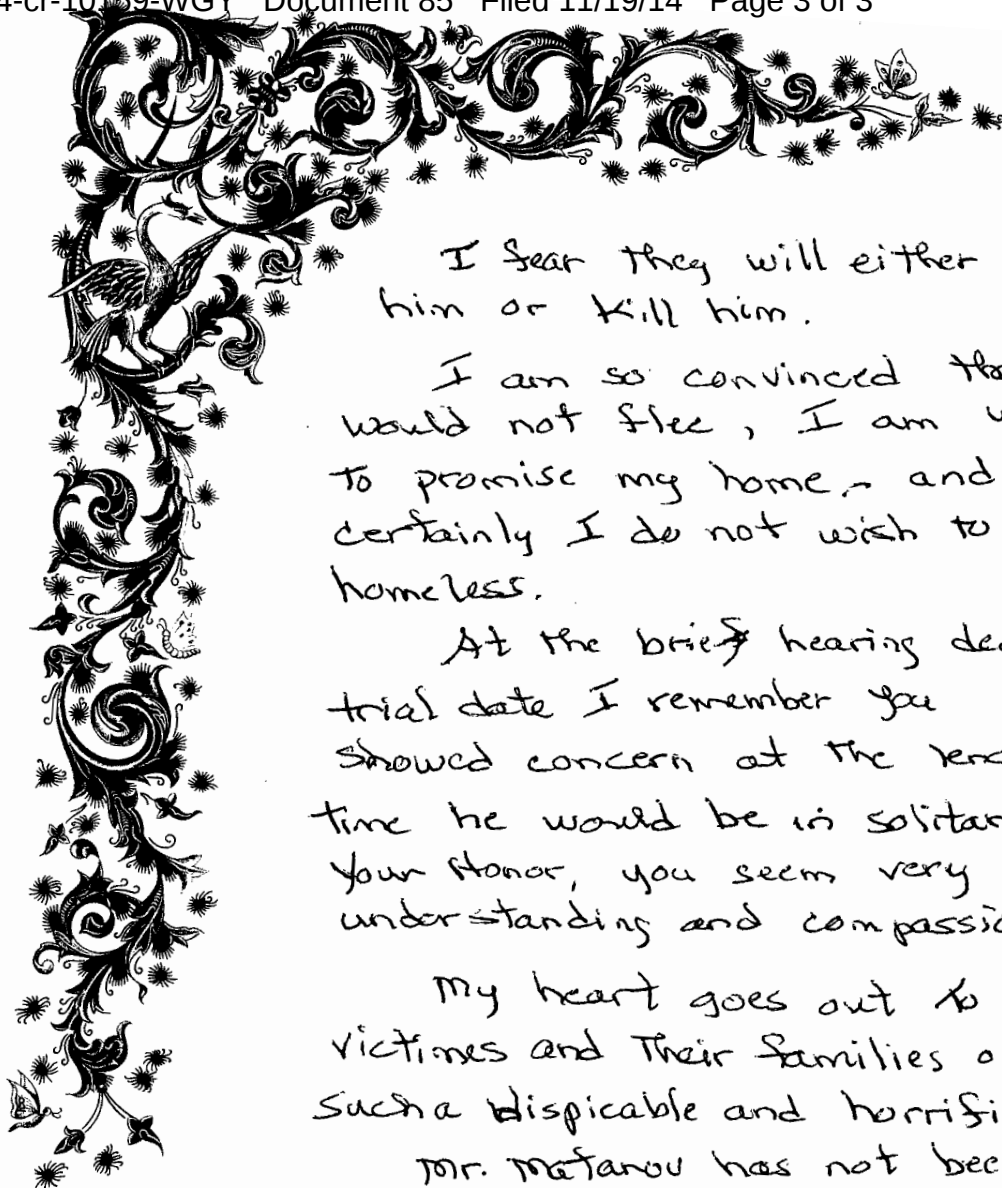 4-cr-10159-WGY Document 85 Filed 11/19/14 Page 3 of 3
I fear they will either
him or kill him.
I am so convinced
would not flee, I am
to promise my home - and
certainly I do not wish to
homeless.
At the brief hearing
trial date I remember you
showed concern at the
time he would be in
Your Honor, you seem very
understanding and
My heart goes out to
victimes and their families
such a dispicable and
Mr. Matanov has not